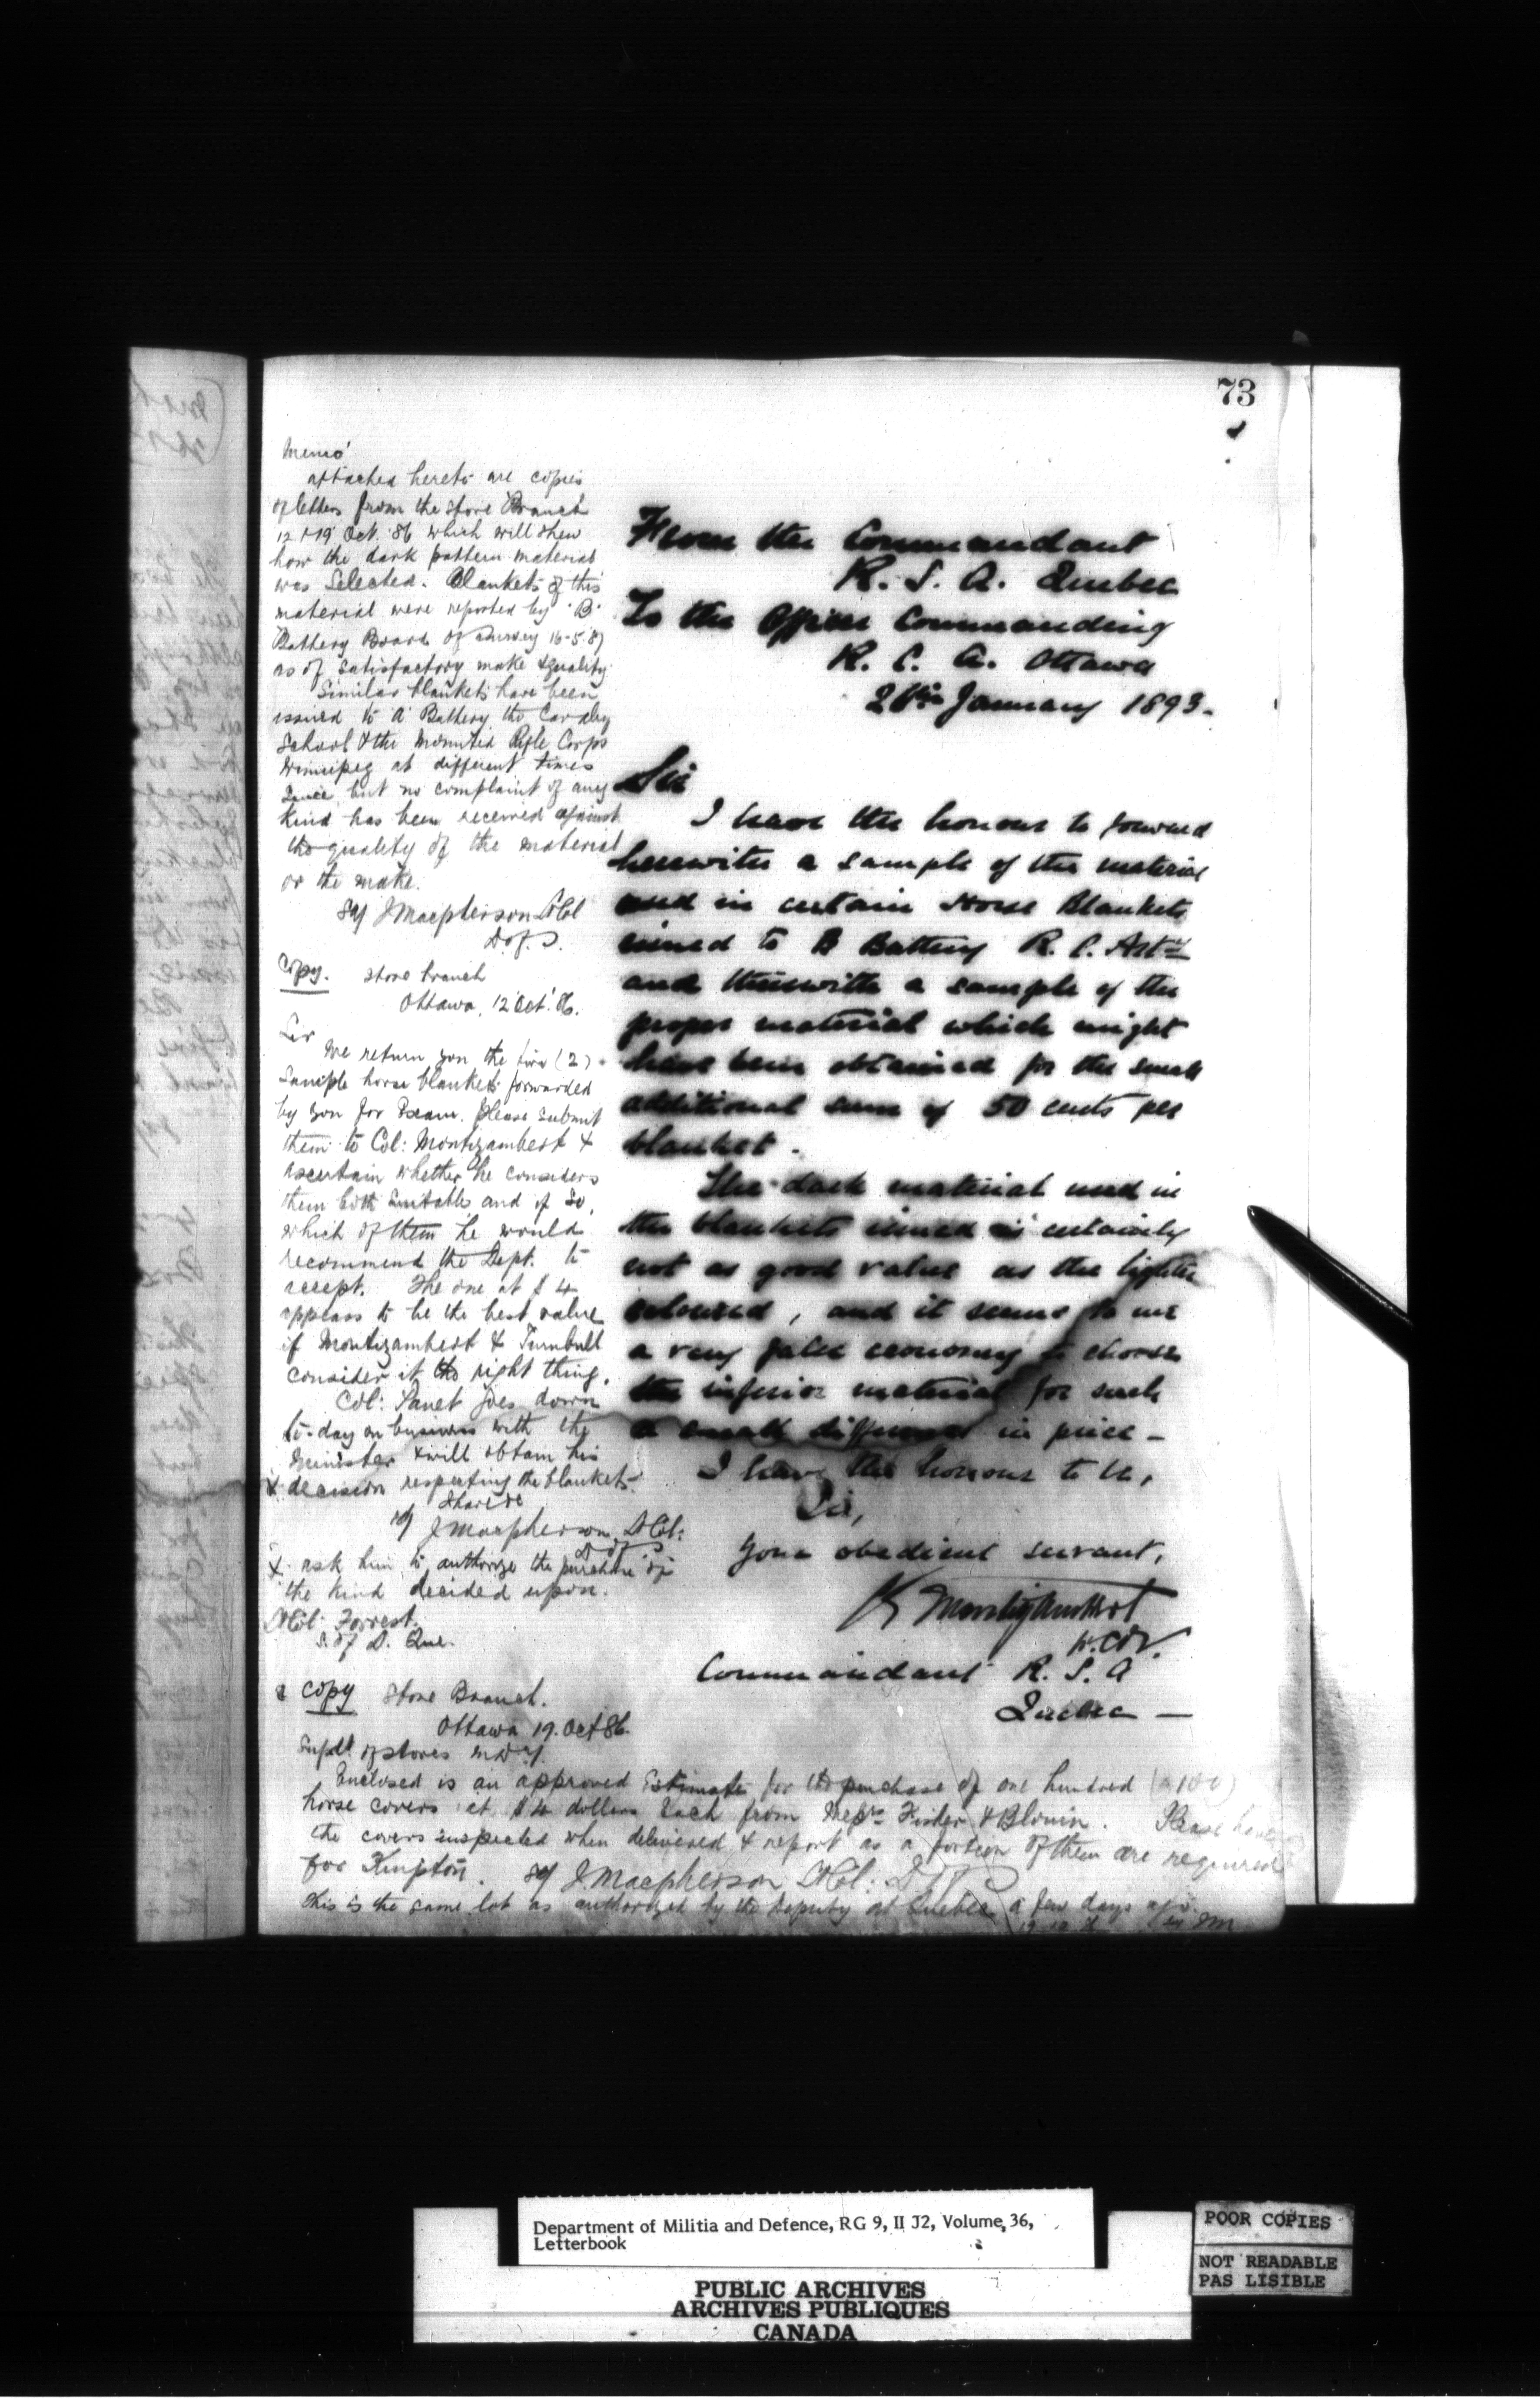 73
Memo'
attached hereto are copies
of letters from the Store Branch
12 & 19 Oct. '86 which will shew
how the dark pattern material
was Selected. Blankets of this
material were reported by 'B'
Battery Board of Survey 16-5-87
as of satisfactory make & quality.
Similar blankets have been
issued to 'A' Battery the Cavalry
School & the Mounted Rifle Corps
Winnipeg at different times
since, but no complaint of any
kind has been received against
the quality of the material
or the make.
Sgd J Macpherson Lt Col
D of S.
Copy. Store branch
Ottawa, 12 Oct. '86.
Sir
We return you the two (2)
Sample horse blankets forwarded
by you for Exam. Please submit
them to Col: Montizambert &
ascertain whether he considers
them both Suitable and if so,
which of them he would
recommend the Dept. to
accept. The one at $4
appears to be the best value
if Montizambert & Turnbull
consider it the right thing.
Col: Panet goes down
to-day on business with the
Minister & will obtain his
x decision respecting the blankets.
Sgd J Macpherson, Lt Col:
D of S
x ask him to authorize the purchase of
the kind decided upon.
Lt Col: Forrest.
S. of S. Que.
Copy Store Branch.
Ottawa 19. Oct 86.
Supdt. of Stores
Enclosed is an approved Estimate for the purchase of one hundred (100)
horse covers at $4 dollars each from Messrs Fisher & Blouin. Please have
the covers inspected when delivered & report as a portion of them are required
for Kingston. Sgd J. Macpherson Lt Col: D of S
This is the same lot as authorized by the Deputy at Quebec a few days ago.
From the Commandant
R. S. A. Quebec
To the Officer Commanding
R. C. A. Ottawa
26th January 1893.
Sir
I have the honour to forward
herewith a sample of the material
used in certain Horse Blankets
issued to B Battery R. C. Arty
and therewith a sample of the
proper material which might
have been obtained for the small
additional sum of 50 cents per
blanket.
The dark material used in
the blankets issued is certainly
not as good value as the lighter
coloured, and it seems to me
a very false economy to choose
the inferior material for such
a small difference in price -
I have the honour to be,
Sir,
Your obedient servant,
Montizambert
Lt. Col.
Commandant R. S. A
Quebec -
Department of Militia and Defence, RG 9, II J2, Volume, 36,
Letterbook
PUBLIC ARCHIVES
ARCHIVES PUBLIQUES
CANADA
POOR COPIES
NOT READABLE
PAS LISIBLE